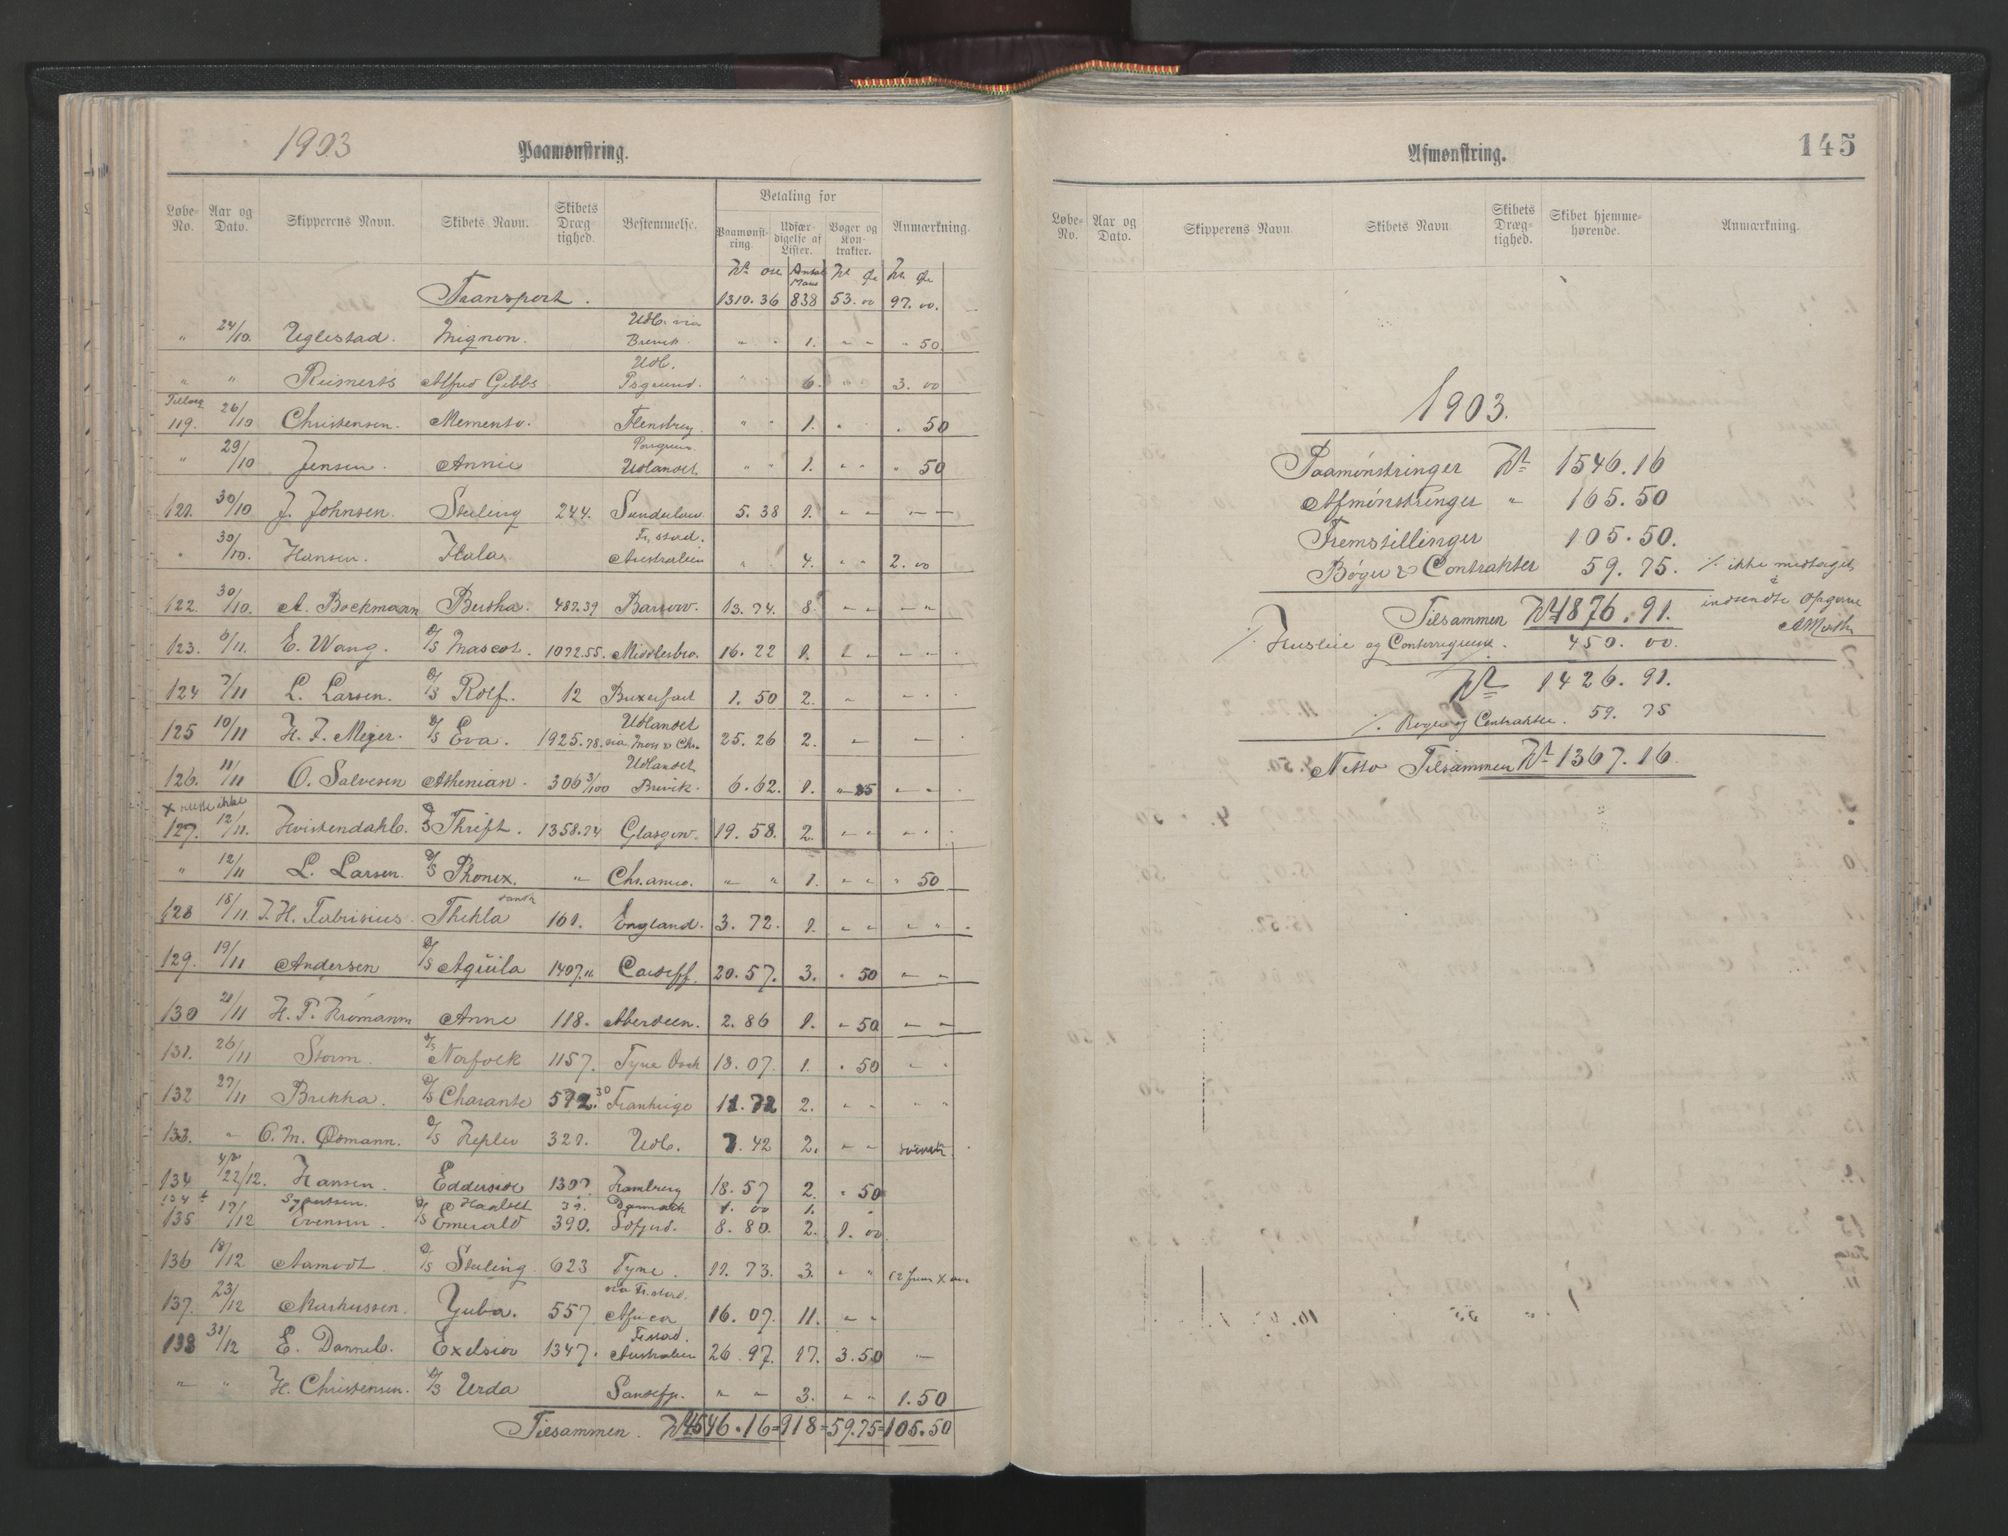 1903
Paamønstring.
Løbe-No. Aar og Dato. Skipperens Navn. Skibets Navn. Skibets Dræg-tighed. Bestemmelse. Betaling for Paamønst-ring. Udfær-digelse af Lister. Bøger og Kon-trakter. Anmærkning.
Kr. øre Antal Mans Kr Øre Kr. Øre
Transport. 1310.36 838 53.00 97.00.
" 24/10. Uglestad. Mignon. Udl. via Brevik. " " 1. " " " 50.
" " Reinerts Alfred Gibbs Udl. Psgrund. " 6. " " 3.00
Tillæg
119. 26/10 Christensen. Memento. Flensbrg. " " 1. " . 50
" 29/10 Jensen. Annie Udlandet " " 1. " " " 50
121. 30/10 J. Johnsen. Sterling 244. Sunderlan 5.38 1. " " " "
" 30/10. Hansen. Hala. Fr.stad. Australien " . 4. " " 2.00
122. 30/10. A. Bockmann Bertha. 487.39 Barrow. 13.74. 8. " " " "
123. 6/11. E. Wang. D/S Mascot. 1092.55. Middlesbro. 16.22 1. " " " "
124 7/11 L. Larsen. D/S Rolf. 12 Buxerfart 1.50 2. " " .
125 10/11 H. J. Meyer. D/S Eva. 1925.78. Udlandet via Moss & Chr. 25.26 2. " "
126. 11/11 O. Salvesen Athenian. 306 3/100 Udlandet Brevik. 6.62. 1. " 25 " "
x reiste ikke
127. 12/11. Hvistendahl. D/S Thrift. 1358.74 Glasgow. 19.58. 2. " " " .
" 12/11 L. Larsen. D/S Phonix. " Chr.ania. " " 1. " " " 50
128 18/11. J. H. Fabrisius. Thekla 161. England. 3.72. 1. " " " " .
129. 19/11 Andersen D/S Aquila 1407. Cardiff. 20.57. 3. " 50 " "
130 21/11 H. P. Kromann Anne 118. Aberdeen. 2.86 1. " 50 " "
131. 26/11 Storm. D/S Norfolk 1157. Tyne Dock 18.07. 1. " 50 " "
132 27/11 Brekka. D/S Charante 572.30 Frankrige 11.72 2. " " " "
133. " O. M. Ødmann. D/S Kepler 321. Udl. 7.42 2. " " svensk.
134 22/12. Hansen. Edderside 1307 Hamburg 18.57 2. " 50
134 b Syvertsen. D/S Haabet 39. Danmark 1.00 1. "
135 17/12 Evensen. D/S Emerald 390. Iddefjord. 8.80. 2. 1.00
136 18/12 Aamodt. D/S Sterling 623 Tyne. 11.73. 3. " "
137. 23/12 Markussen. Yuba. 557. via Fr.stad. Africa 16.07. 11. " "
138 31/12 E. Danneb. Exelsior 1347. Fr.stad. Australien 26.97. 17. 3.50 "
" " H. Christensen. D/S Urda Sandefj. " " 3. " " 1.50
Tilsammen. Kr 1546.16 = 918 = 59.75 = 105.50
145
Afmønstring.
Løbe-No. Aar og Dato. Skipperens Navn Skibets Navn Skibets Dræg-tighed. Skibet hjemme-hørende. Anmærkning.
1903.
Paamønstringer Kr 1546.16
Afmønstringer " 165.50
Fremstillinger 105.50.
Bøger & Contrakter 59.75. ./. ikke medtaget i
Tilsammen Kr 1876.91. indsendte Opgave
./. Husleie og Contorrequisit. 450.00.
Kr 1426.91.
./. Bøger og Contrakter. 59.75
Netto Tilsammen Kr 1367.16.